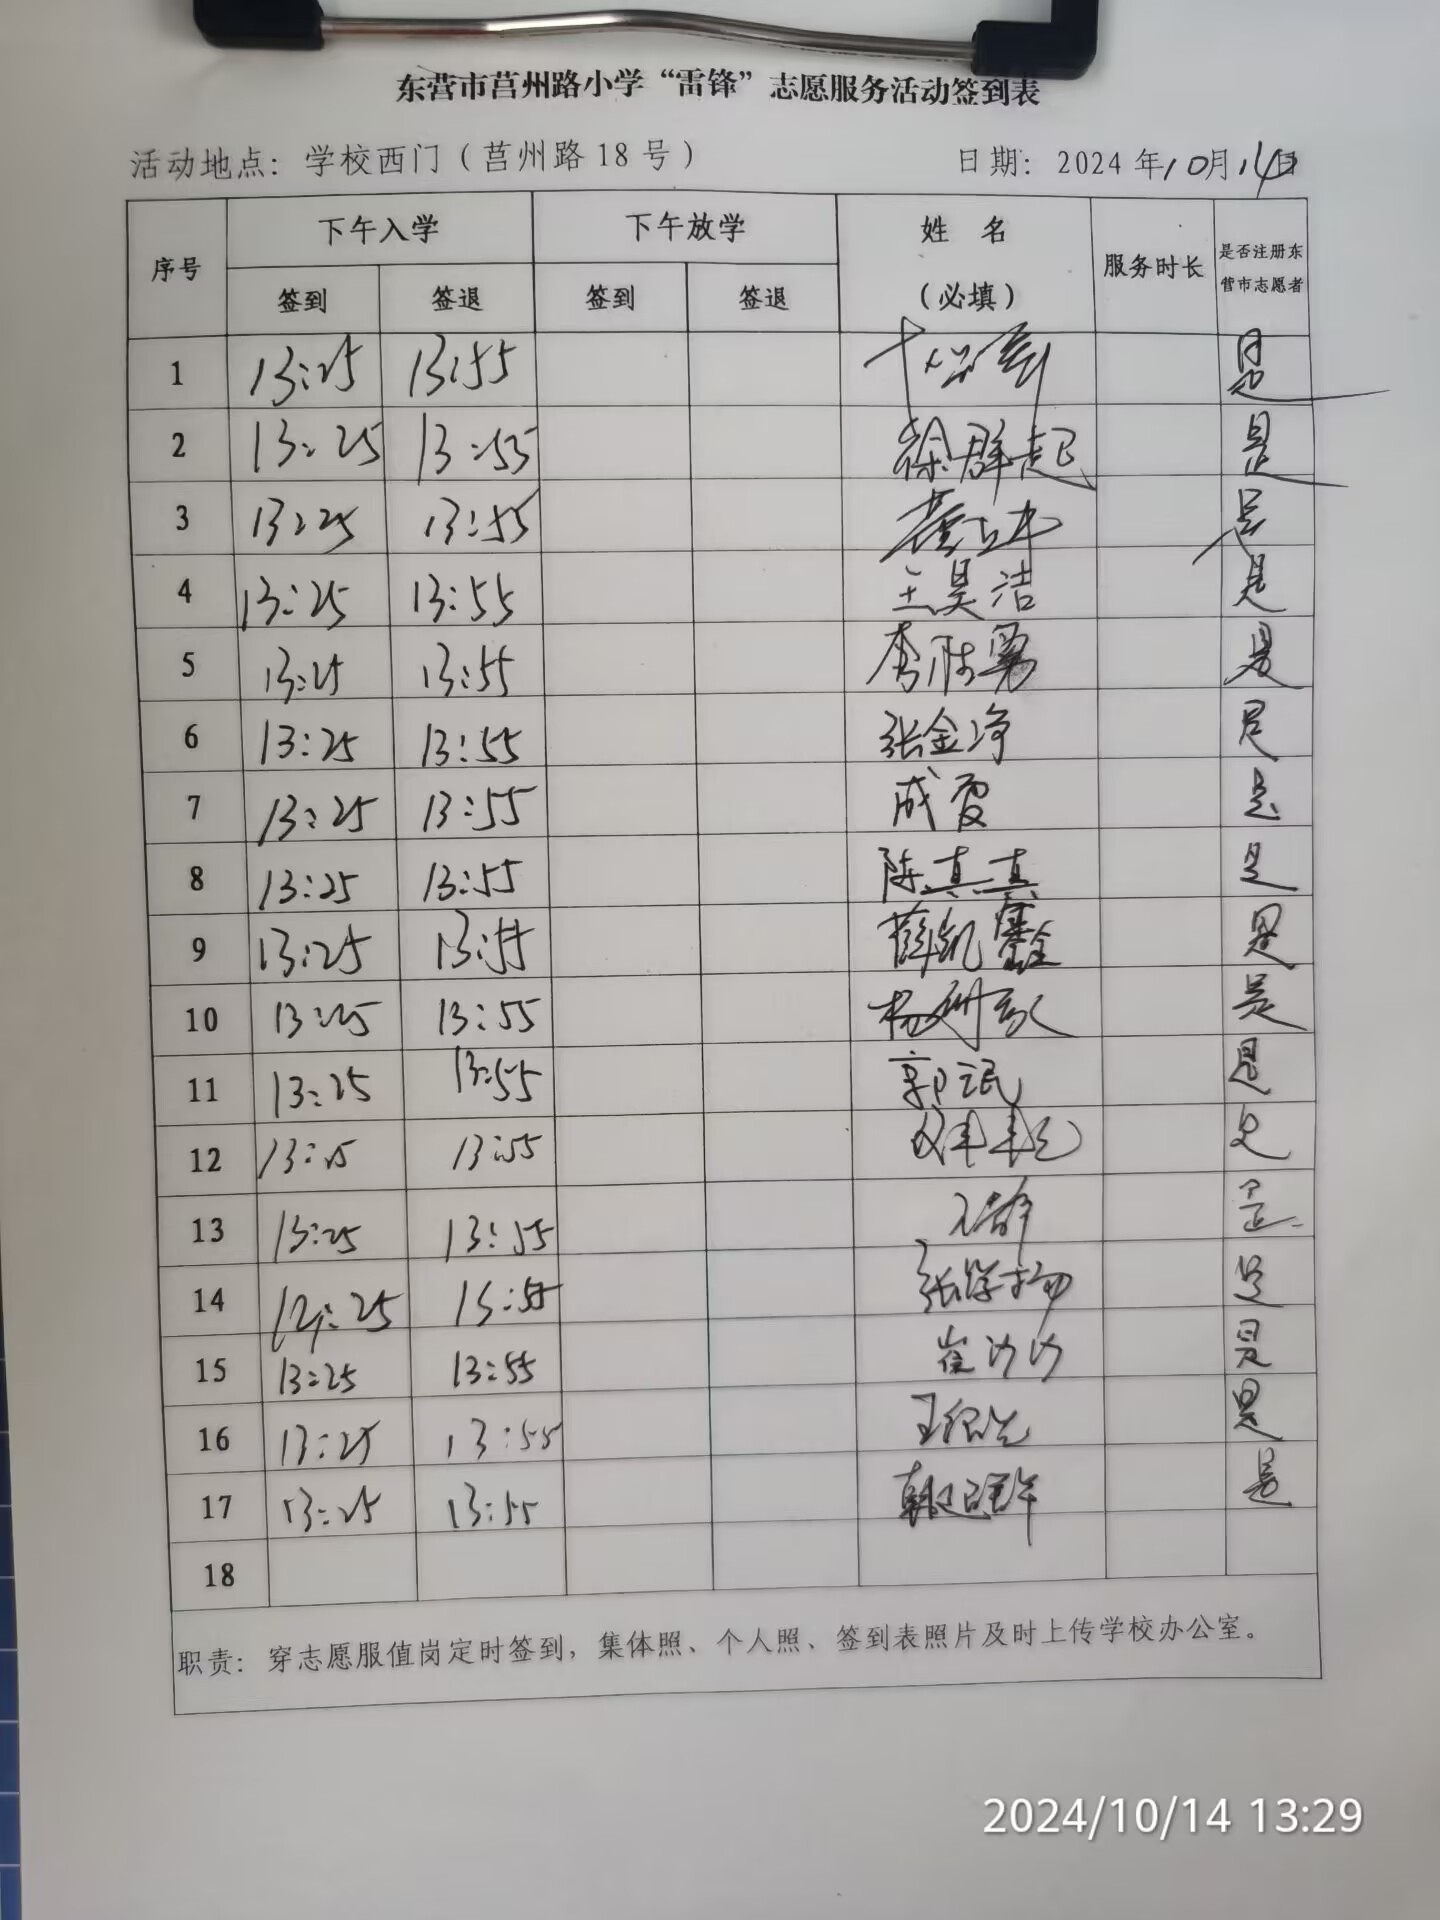 东营市莒州路小学“雷锋”志愿服务活动签到表
活动地点：学校西门（莒州路18号） 日期：2024年10月14日
序号 下午入学 下午放学 姓 名 服务时长 是否注册东
营市志愿者
签到 签退 签到 签退 （必填）
1 13:25 13:55 是
2 13:25 13:55 徐群起 是
3 13:25 13:55 是
4 13:25 13:55 王昊洁 是
5 13:25 13:55 李胜勇 是
6 13:25 13:55 张金净 是
7 13:25 13:55 成霞 是
8 13:25 13:55 陈真真 是
9 13:25 13:55 薛凯鑫 是
10 13:25 13:55 是
11 13:25 13:55 郭 是
12 13:25 13:55 是
13 13:25 13:55 是
14 25 13:55 张学 是
15 13:25 13:55 崔 是
16 13:25 13:55 王 是
17 13:25 13:55 是
18
职责：穿志愿服值岗定时签到，集体照、个人照、签到表照片及时上传学校办公室。
2024/10/14 13:29